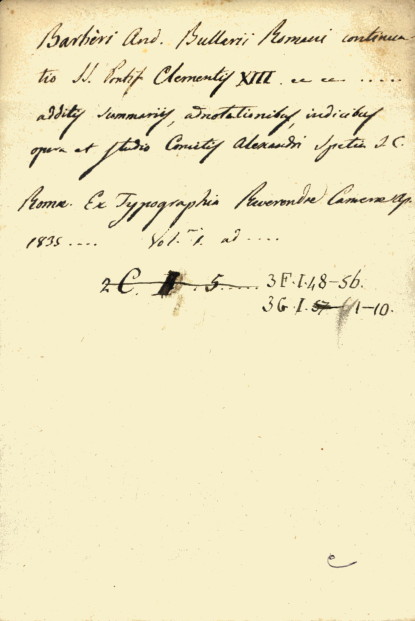 Barbèri And. Bullarii Romani continua-
tio SS. Pontif Clementis XIII. ec ec .....
additis summariis, adnotationibus, indicibus
opera et studio Comitis Alexandri Spetia I. C.
Romæ. Ex Typographia Reverendæ Cameræ Ap.
1835 .... Vol. 1. ad ....
2 C. . 5 ..... 3 F. I. 48-56.
3 G. I. 57 1-10.